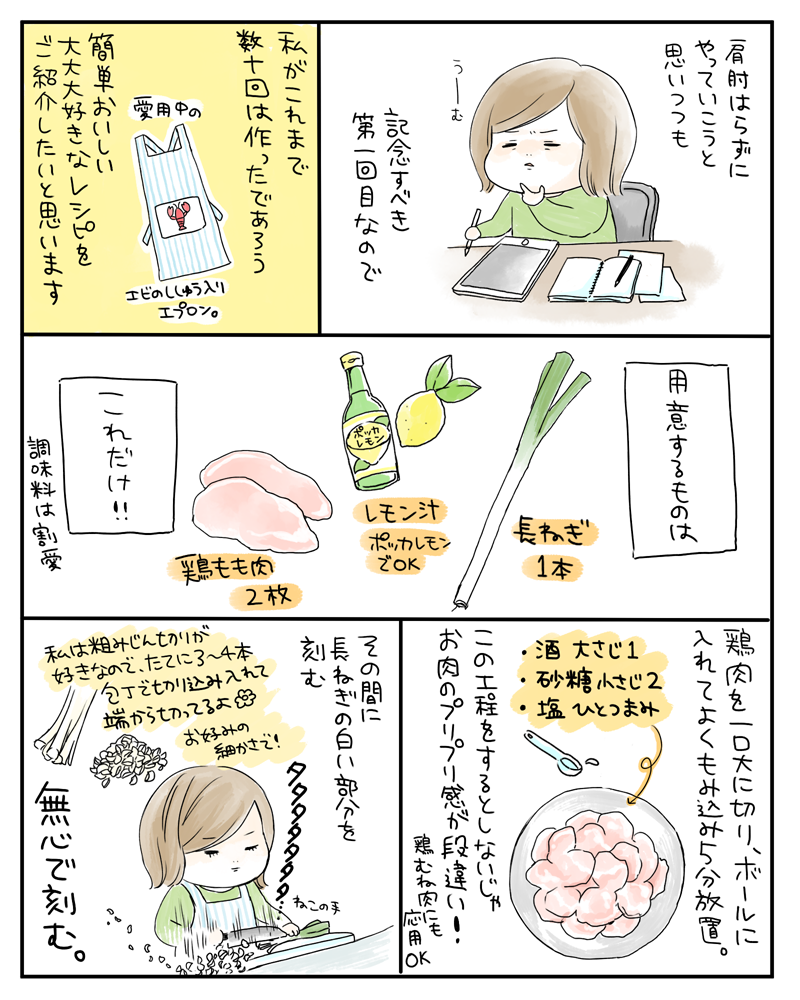 肩肘はらずに
やっていこうと
思いつつも
うーむ
記念すべき
第一回目なので
私がこれまで
数十回は作ったであろう
愛用中の
エビのししゅう入り
エプロン。
簡単おいしい
大大大好きなレシピを
ご紹介したいと思います
用意するものは
長ねぎ
1本
ポッカ
レモン
レモン汁
ポッカレモン
でOK
鶏もも肉
2枚
これだけ!!
調味料は割愛
鶏肉を一口大に切り、ボールに
入れてよくもみ込み5分放置。
・酒 大さじ1
・砂糖 小さじ2
・塩 ひとつまみ
この工程をするとしないじゃ
お肉のプリプリ感が段違い!
鶏むね肉にも
応用
OK
その間に
長ねぎの白い部分を
刻む
私は粗みじん切りが
好きなので、たてに3〜4本
包丁で切り込み入れて
端から切ってるよ
お好みの
細かさで!
タタタタタタタ…
ねこの手
無心で刻む。